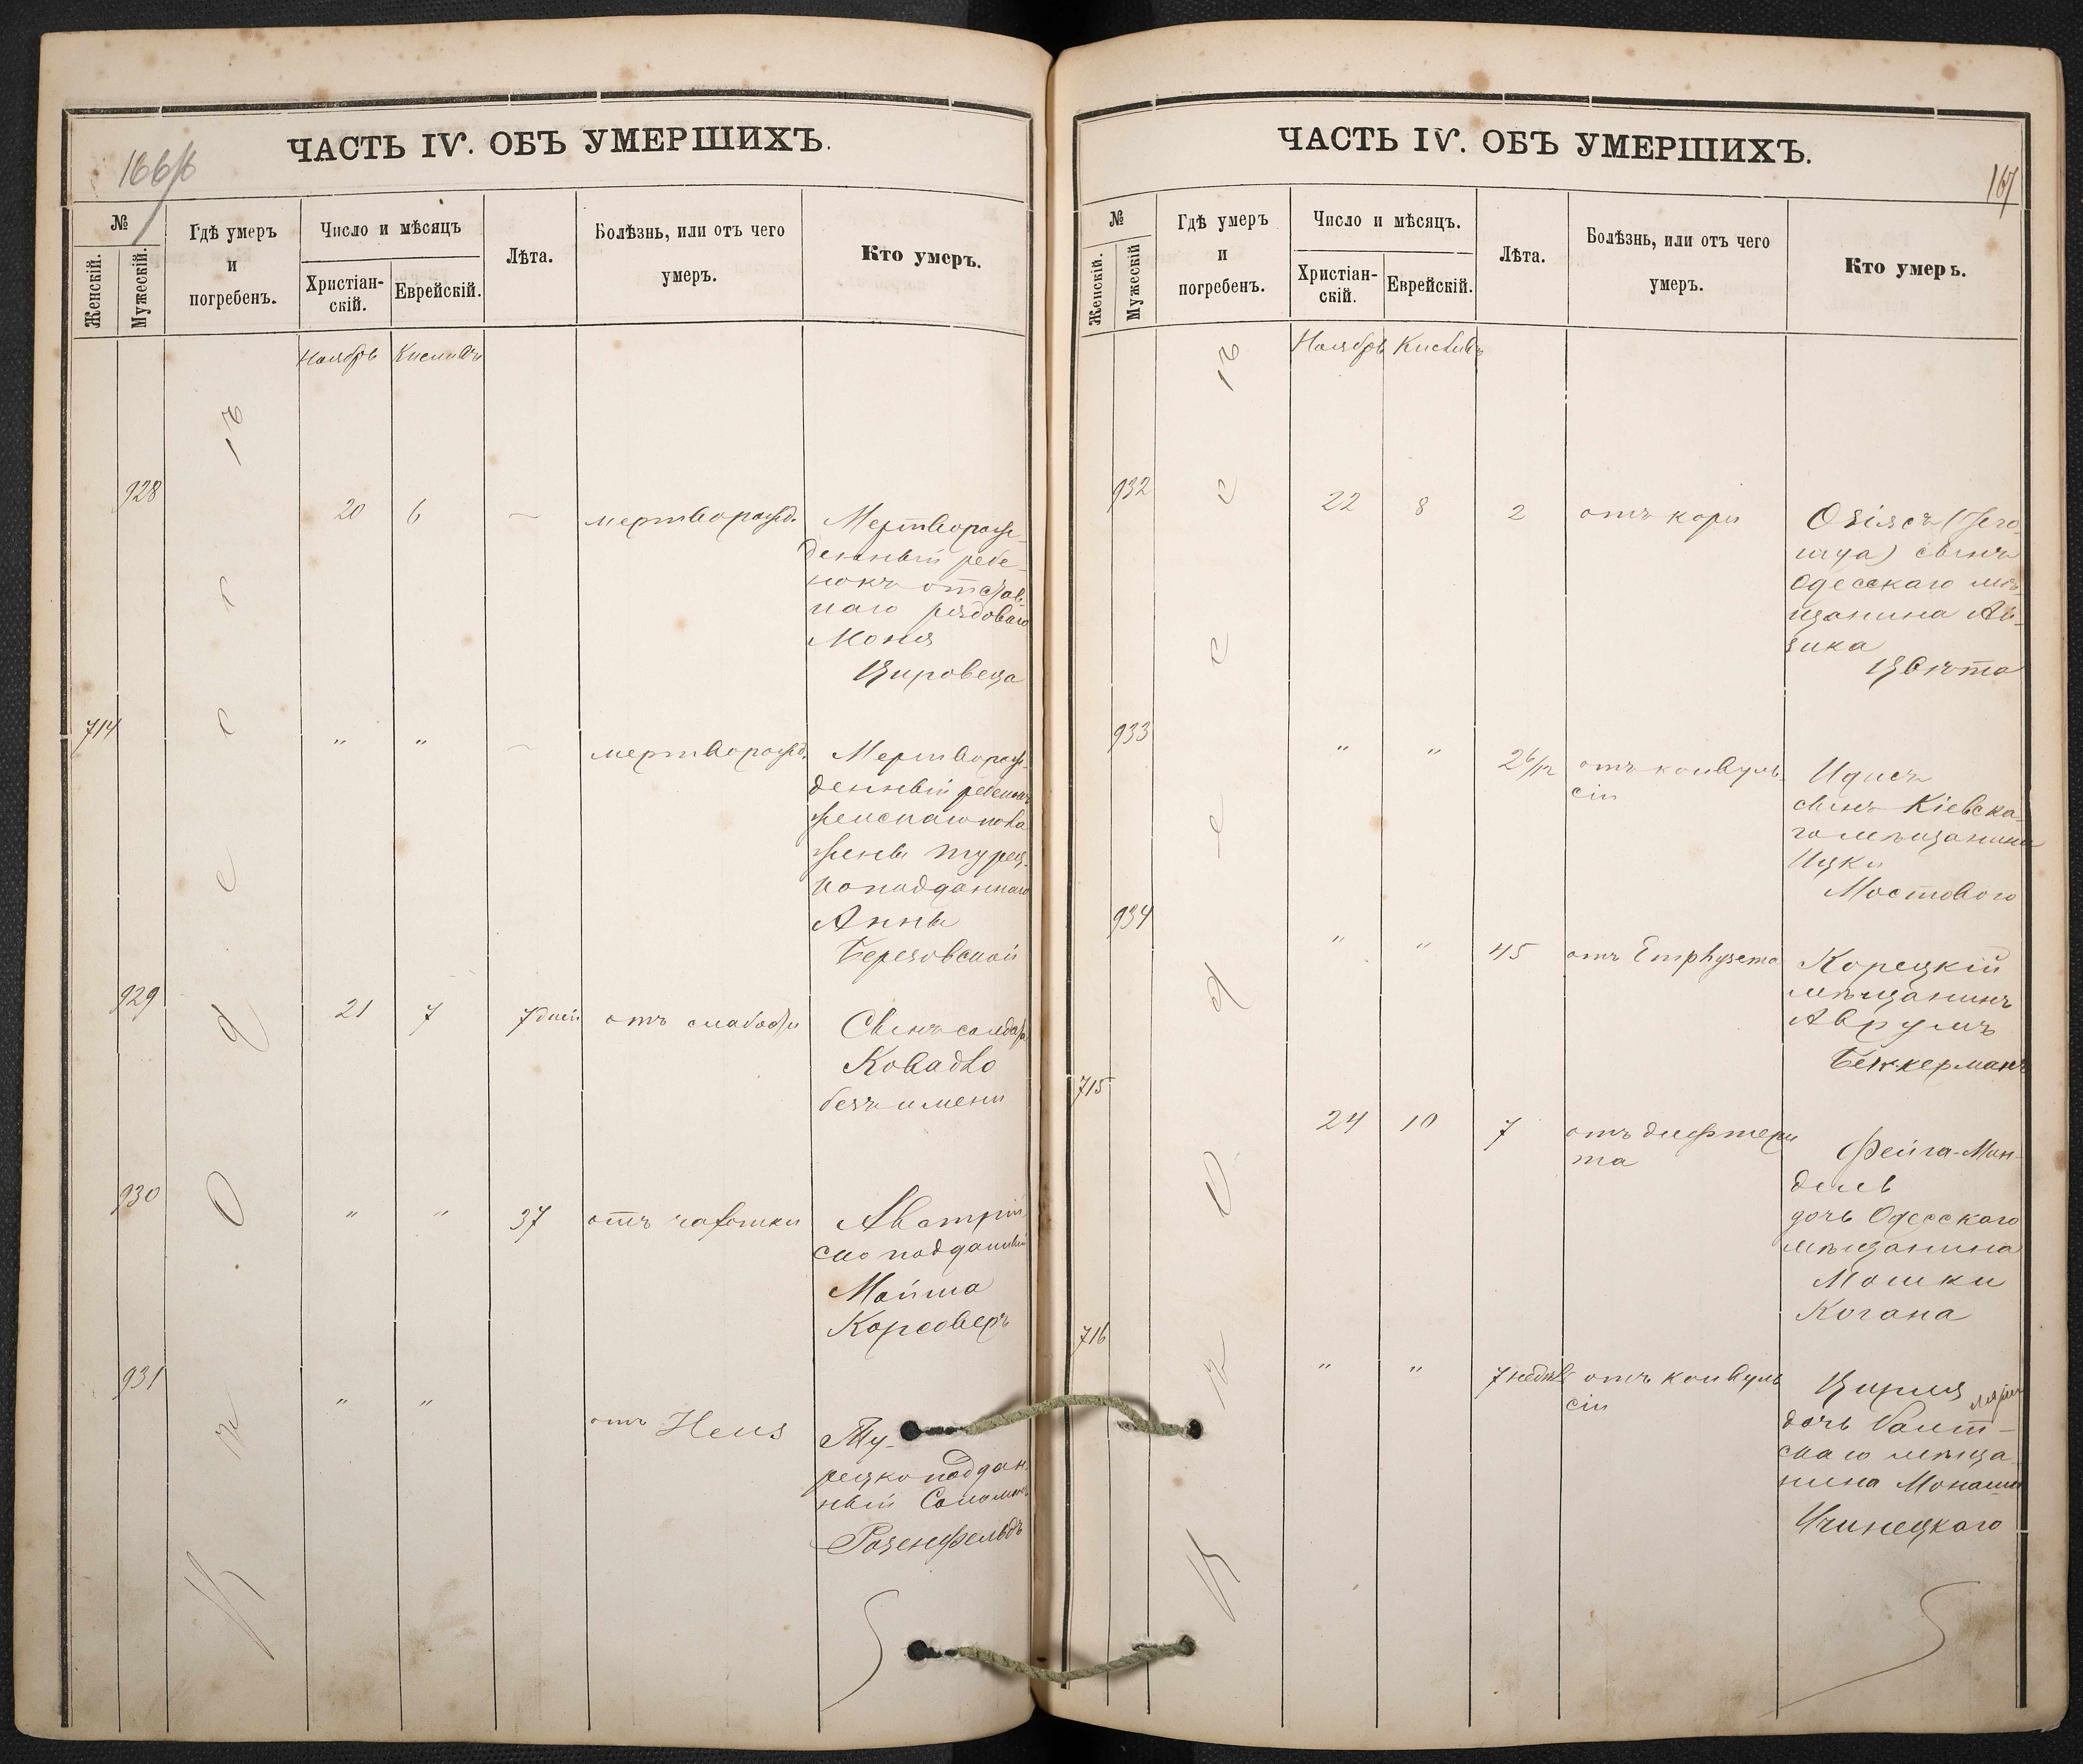 ЧАСТЬ IV. ОБЪ УМЕРШИХЪ.
№
Женскій.
Мужескій.
Гдѣ умеръ
и
погребенъ.
Число и мѣсяцъ
Христіан-
скій.
Еврейскій.
Лѣта.
Болѣзнь, или отъ чего
умеръ.
Кто умеръ.
Ноябрь Кислевъ
въ Одессѣ
928
20 6 — мертворожд.
Мертворож-
денный ребе-
нокъ отстав
наго рядоваго
Моня
Цировеца
714
" " — мертворожд.
Мертворож-
денный ребенокъ
женскаго пола
жены турец-
коподданнаго
Анны
Березовской
929
21 7 7 дней отъ слабости
Сынъ солдата
Ковадло
безъ имени
930
" " 37 отъ чахотки
Австрій
ско подданный
Мойша
Корсоверъ
931
" " отъ
Ту-
рецкоподдан
ный Соломонъ
Розенфельдъ
ЧАСТЬ IV. ОБЪ УМЕРШИХЪ.
167
№
Женскій.
Мужескій
Гдѣ умеръ
и
погребенъ.
Число и мѣсяцъ.
Христіан-
скій.
Еврейскій.
Лѣта.
Болѣзнь, или отъ чего
умеръ.
Кто умеръ.
Ноябрь Кислевъ
въ Одессѣ
932
22 8 2 отъ кори
Озіясъ
сынъ
Одесскаго мѣ-
щанина Ай-
зика
Цвѣта
933
" " 2 6/12 отъ конвуль-
сіи
Идисъ
сынъ Кіевска-
го мѣщанина
Ицки
Мостового
934
" " 45 отъ Emphysema
Корецкій
мѣщанинъ
Аврумъ
Беккерманъ
715
24 10 7 отъ дифтери
та
Фейга-Мин-
дель
дочь Одесскаго
мѣщанина
Мошки
Когана
716
" " 7 недѣль отъ конвуль
сіи
Цирля
дочь Балт-
скаго мѣща-
нина Монаши
Ичинецкаго